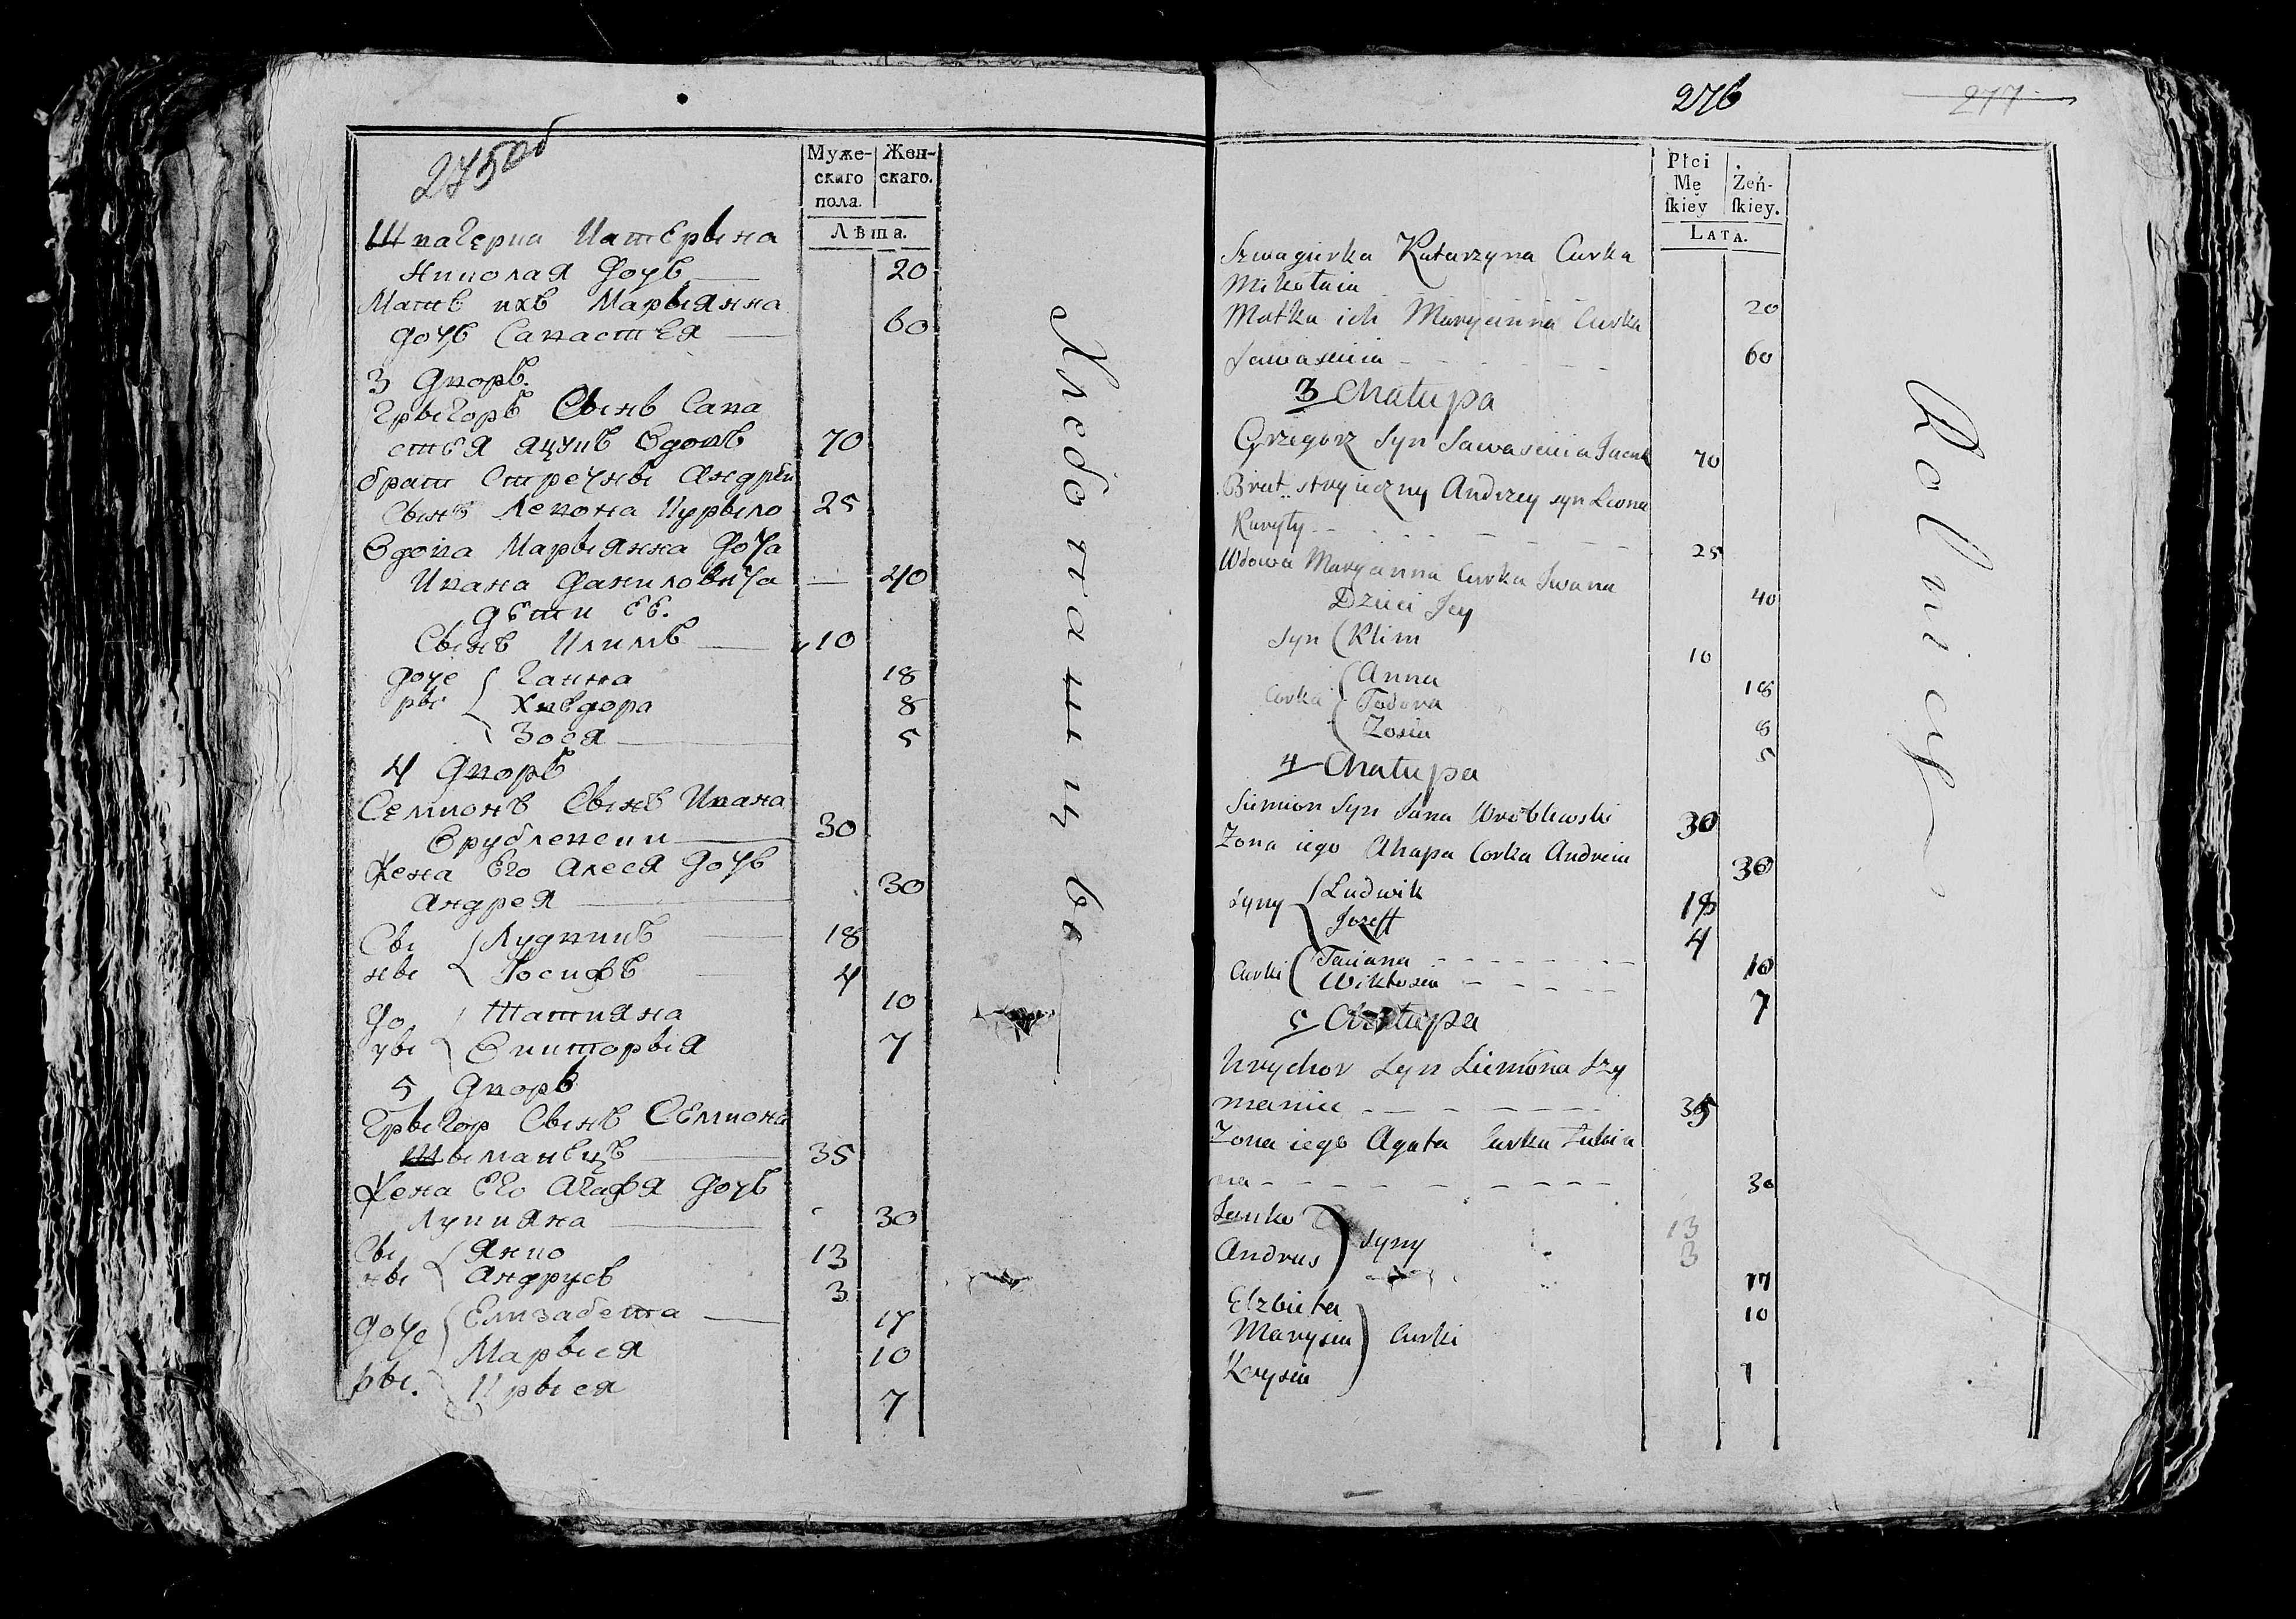 275об
Муже-
скаго
пола.
Жен-
скаго.
Лѣта.
Швагерка Катерына
Николая дочь 20
Мать ихъ Марыянна
дочь Савастея 60
3 Дворъ.
Грыгоръ Сынъ Сава
стея Яцукъ вдовъ 70
братъ стречны Андрей
Сынъ Левона Курыло 25
Вдова Марыянна доча
Ивана Даниловича — 40
дети ее.
Сынъ Климъ 10
доче Ганна 18
ры Хведора 8
Зося 5
4 Дворъ
Семионъ Сынъ Ивана
Врублевски 30
Жена Его Алеся дочь
Андрея 30
Сы Лудвикъ 18
ны Іосифъ 4
До Татияна 10
чы Викторыя 7
5 Дворъ
Грыгор Сынъ Семиона
Шыманецъ 35
Жена Его Агафя дочь
Лукияна 30
Сы Янко 13
ны Андрусь 3
доче Елизабета 17
Марыся 10
ры. Крыся 7
Хлебопашцы
276
277
Płci
Mę
skiey
Żeń-
skiey.
LATA.
Szwagierka Katarzyna Curka
Mikołaia 20
Matka ich Maryanna Curka
Sawascieia 60
3 Chałupa
Grzegorz Syn Sawascieia Jacuk 70
Brat stryieczny Andrzey syn Leona
Kuryły 25
Wdowa Maryanna Curka Iwana 40
Dzieci Jey
Syn Klim 10
Corka Anna 18
Todora 8
Zosia 5
4 Chałupa
Siemion Syn Jana Wroblewski 30
Żona iego Ahapa Corka Andreia 30
Syny Ludwik 18
Jozeff 4
Curki Taciana 10
Wiktosia 7
5 Chałupa
Hrychor Syn Siemiona Szy
maniec 35
Żona iego Agata Curka Łukia
na 30
Janko 13
Andrus Syny 3
Elzbieta 17
Marysia Curki 10
Krysia 7
Rolnicy